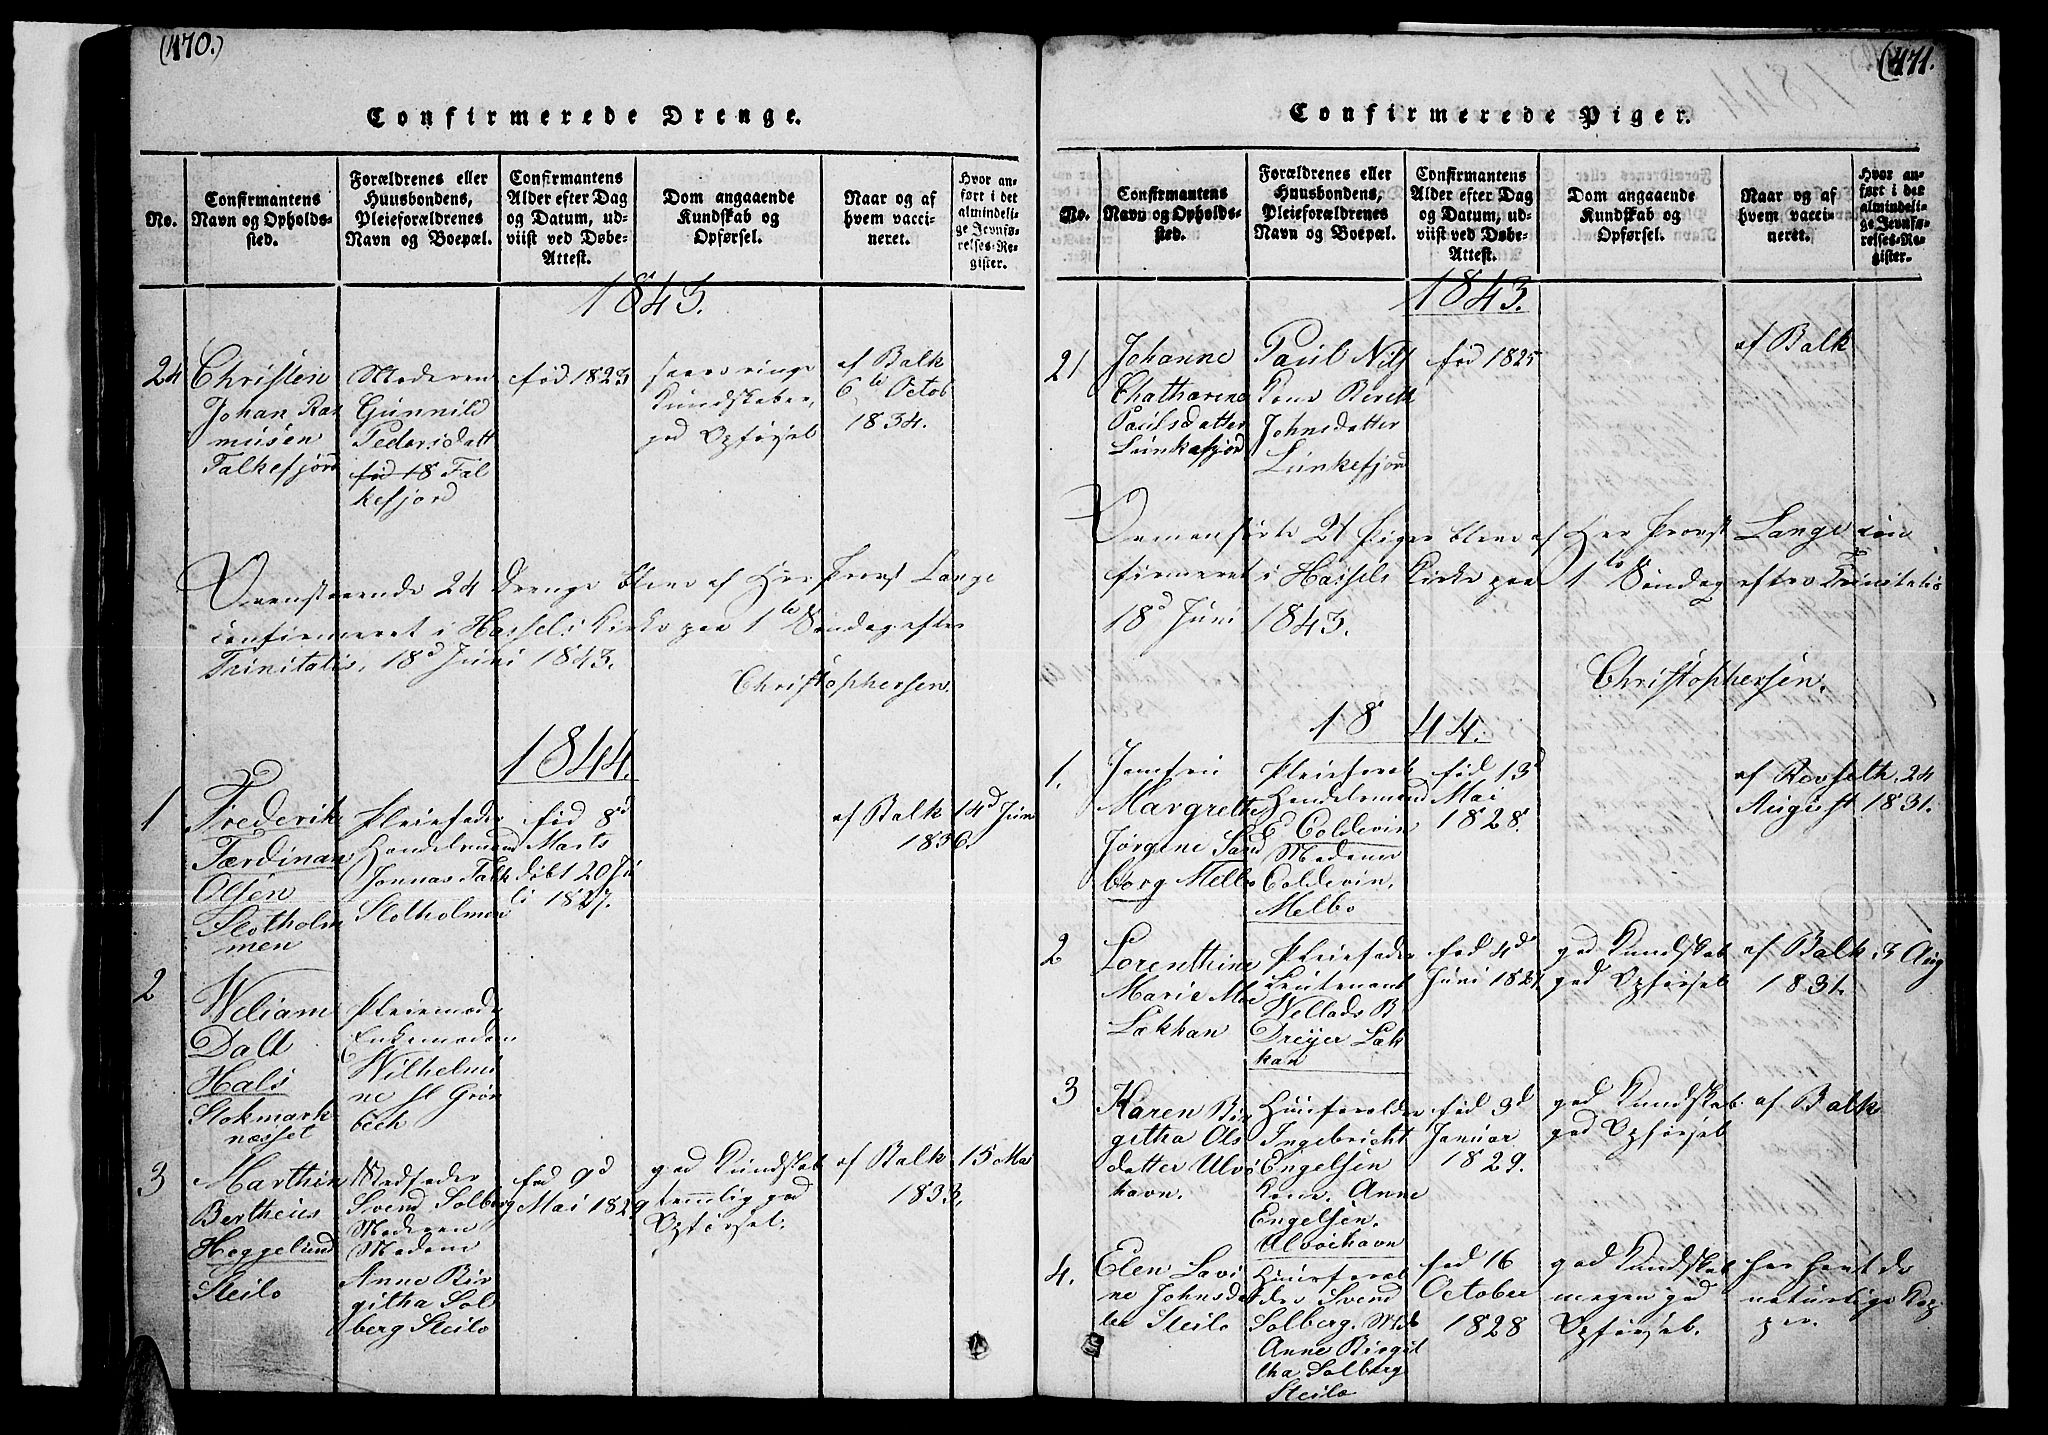 (470.)
Confirmerede Drenge.
No.
Confirmantens
Navn og Opholds-
sted.
Forældrenes eller
Huusbondens,
Pleieforældrenes
Navn og Boepæl.
Confirmantens
Alder efter Dag
og Datum, ud-
viist ved Døbe-
Attest.
Dom angaaende
Kundskab og
Opførsel.
Naar og af
hvem vacci-
neret.
Hvor an-
ført i det
almindeli-
ge Jevnfø-
relses-Re-
gister.
1843.
24
Christen
Johan Ras
musen
Falkefjord
Moderen
Gunnild
Pedersdatt
fød 18 Fal
kefjord
fød 1823
ringe
Kundskaber,
god Opførsel
af Balk
6te Octob
1834.
Ovenstaaende 24 Drenge bleve af Herr Provst Lange
confirmeret i Hassels Kirke paa 1te Søndag efter
Trinitatis, 18d Juni 1843.
Christophersen.
1844.
1
Frederik
Færdinan
Olsen
Slotholm
men
Pleiefader
Handelsmand
Jonnas Falk
Slotholmen
fød 8d
Marts
døbt 20 Ju
li 1827.
af Balk 14d Juni
1836.
2
Weliam
Dall
Hals
Stokmark
næsset
Pleiemoder
Enkemadam
Wilhelmi
ne Sl Grøn
bech
3
Marthin
Bertheus
Heggelund
Steilo
Stedfader
Svend Solberg
Moderen
Madam
Anne Bir
githa Sol
berg Steilo
fød 9d
Mai 1829
god Kundskab
temmlig god
Opførsel.
af Balk 15 Ma
1833.
(471.
Confirmerede Piger.
No.
Confirmantens
Navn og Opholds-
sted.
Forældrenes eller
Huusbondens,
Pleieforældrenes
Navn og Boepæl.
Confirmantens
Alder efter Dag
og Datum, ud-
viist ved Døbe-
Attest.
Dom angaaende
Kundskab og
Opførsel.
Naar og af
hvem vacci-
neret.
Hvor an-
ført i det
almindeli-
ge Jevnfø-
relses-Re-
gister.
1843.
21
Johanne
Chatharine
Paulsdatter
Lunkefjord
Paul Nils
Kone Bereth
Johnsdatter
Lunkefjord
fød 1825
af Balk
21 Piger bleve af Herr Provst Lange con
firmeret i Hassels Kirke paa 1te Søndag efter Trinitatis
18d Juni 1843.
Christophersen.
1844.
1.
Jomfru
Margrethe
Jørgine Sand
borg Melbo
Pleieforæl
Handelsmand
E Coldevin
Madame
Coldevin,
Melbo
fød 13d
Mai
1828.
af 24
August 1831.
2
Lorenthine
Marie Moe
Lakhan
Pleiefader
Leutenant
Wellads B
Dreyer Lak
han
fød 4de
Juni 1827
god Kundskab
god Opførsel
af Balk 3 Aug
1831.
3
Karen Bir
githa Ols
datter Ulvø
havn.
Huusforælder
Ingebricht
Engelsen
Kone Anne
Engelsen.
Ulvøehavn
fød 3d
Januar
1829.
god Kundskab
god Opførsel
af Balk
4.
Elen Lovi
ne Johnsdat
ter Steilo
Huusforæl
der Svend
Solberg. Mad
Anne Birgit
tha Solberg
Steilo
fød 16
October
1828
god Kundskab
megen god
Opførsel.
har havt de
naturlige Kop
per.